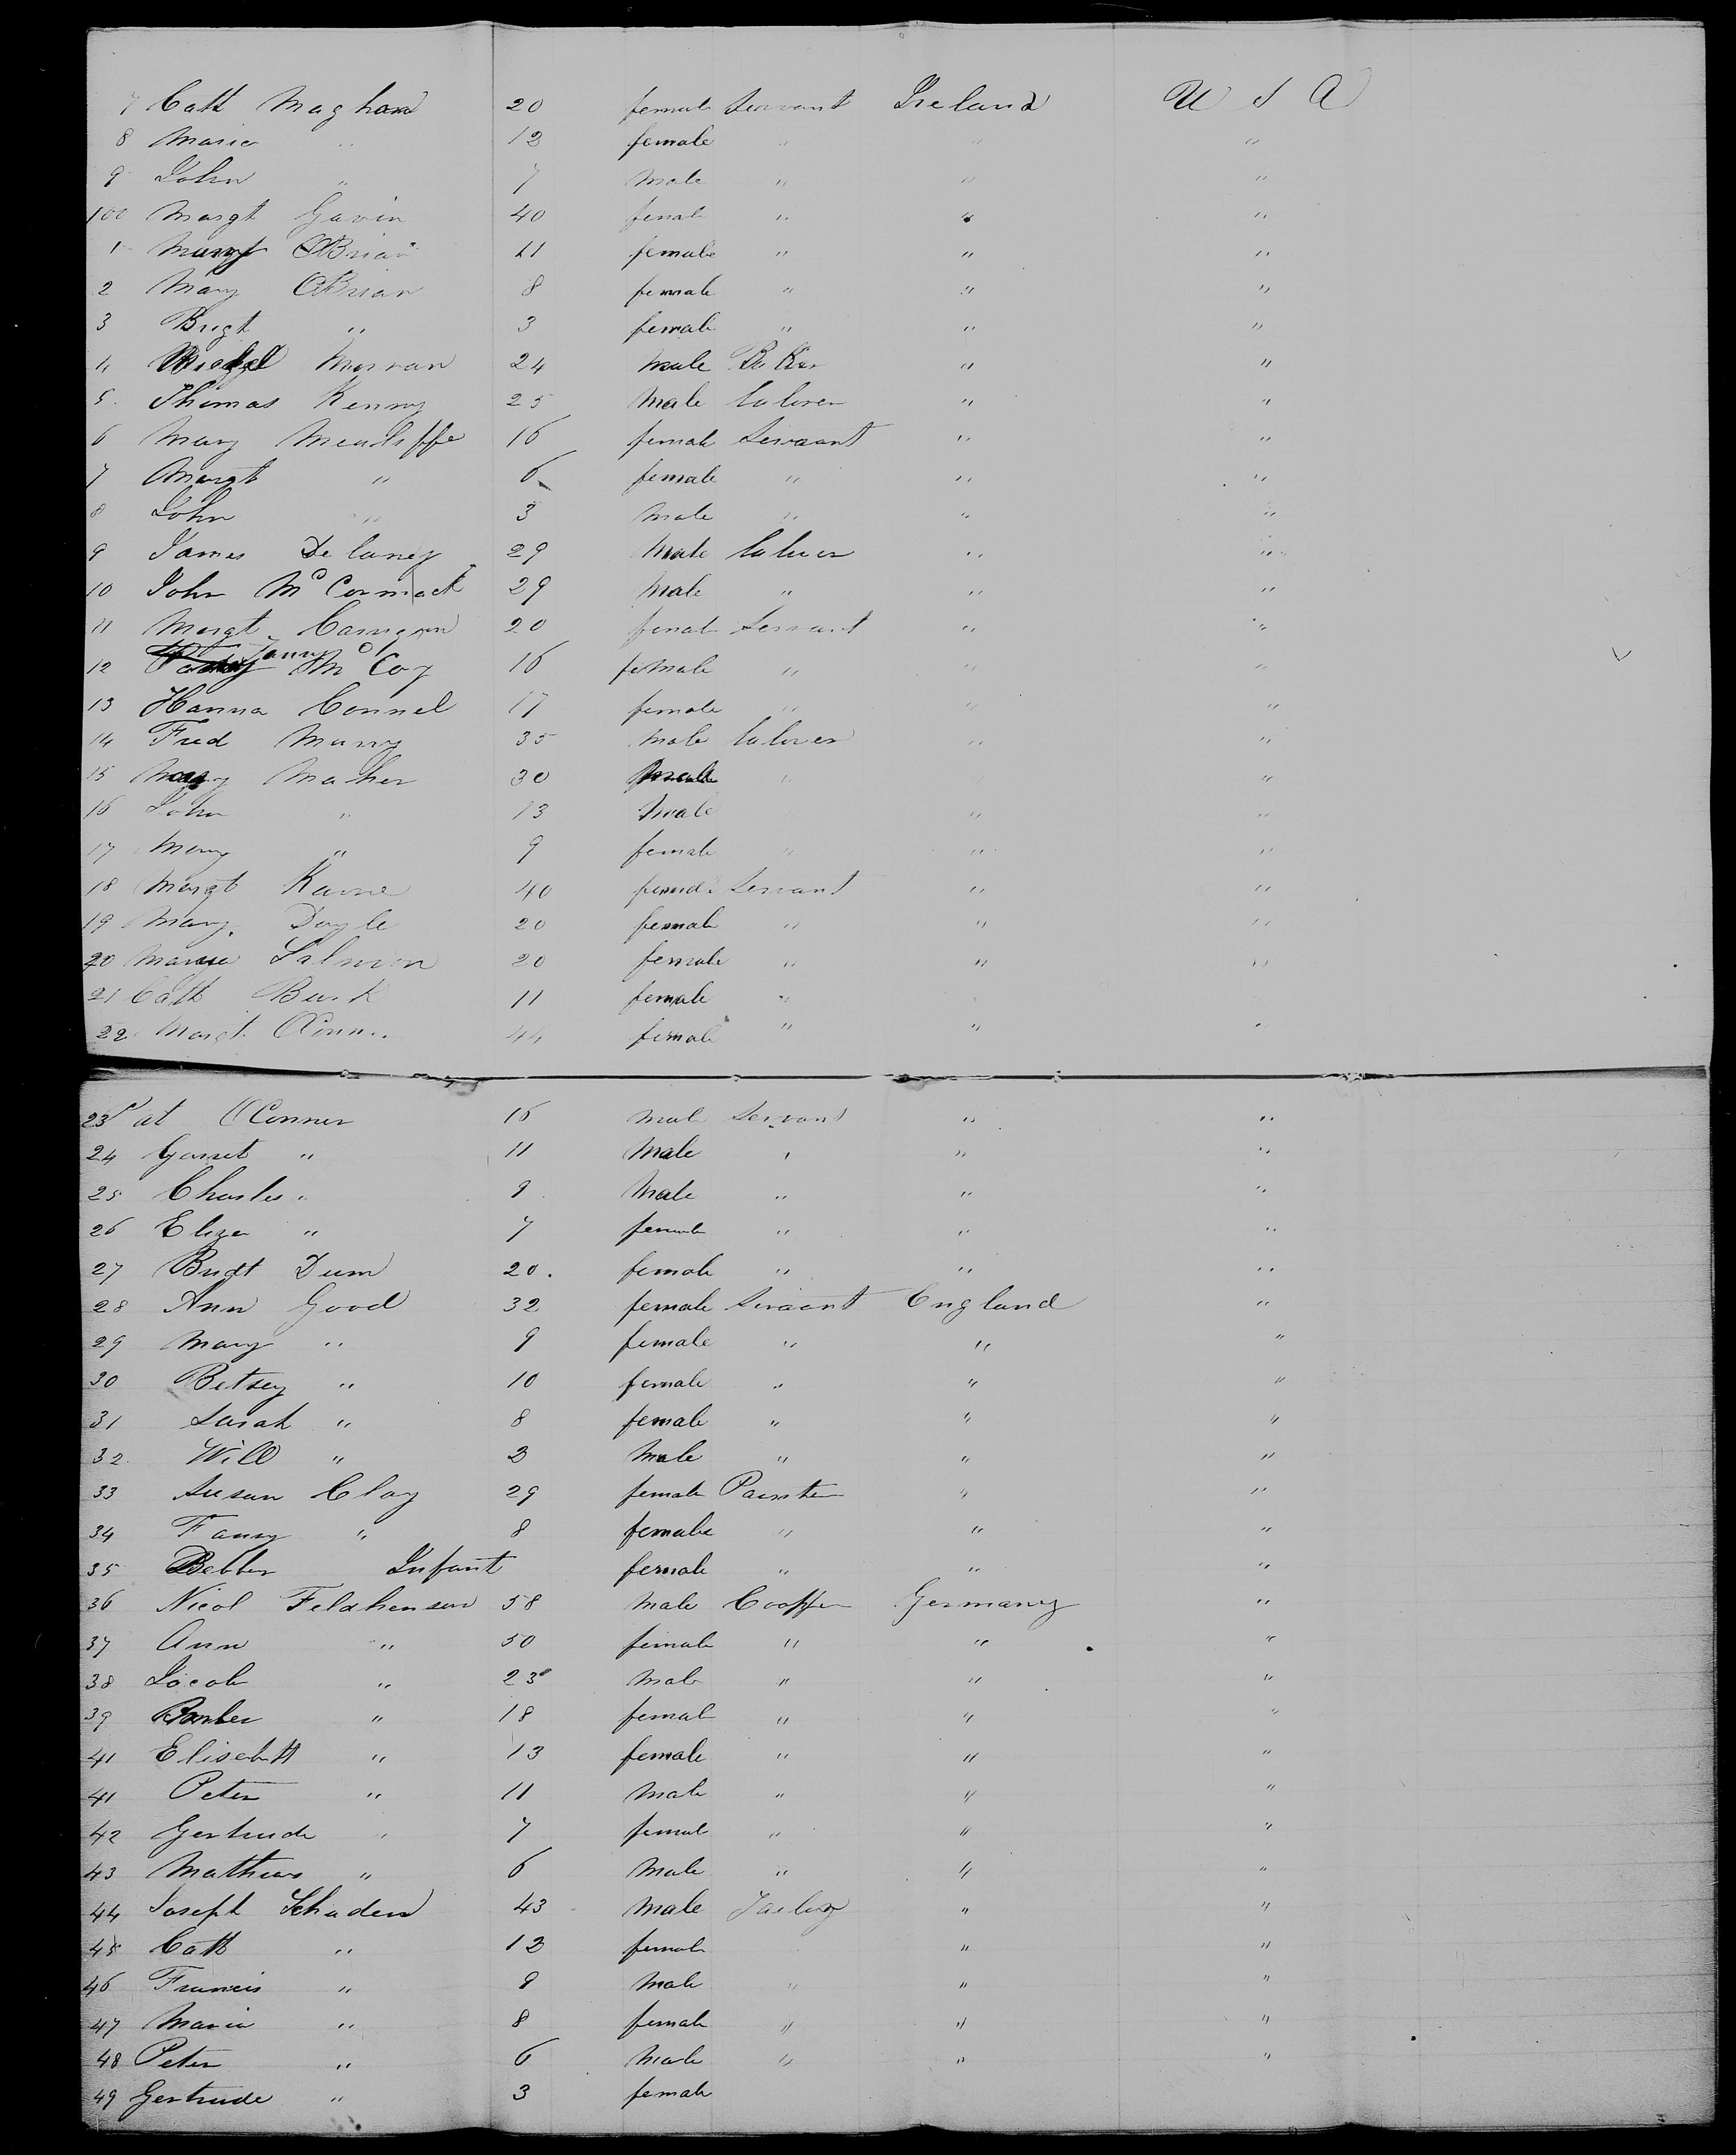 7 Cath Maghan 20 female Servant Ireland U S A
8 Maria " 12 female " " "
9 John " 7 male " " "
100 Margt Gavin 40 female " " "
1 OBrian 11 female " " "
2 Mary OBrian 8 female " " "
3 Brigt " 3 female " " "
4 Morran 24 male " "
5 Thomas Kenny 25 male laborer " "
6 Mary 16 female Servant " "
7 Margt " 6 female " " "
8 John " 3 male " " "
9 James Delaney 29 male laborer " "
10 John McCormack 29 male " " "
11 Margt 20 female Servant " "
12 McCoy 16 female " " "
13 Hanna Connel 17 female " " "
14 Fred 35 male laborer " "
15 Mary Maher 30 " "
16 John " 13 male " "
17 Mary " 9 female " " "
18 Margt Kavne 40 female Servant " "
19 Mary Doyle 20 female " " "
20 Salmon 20 female " " "
21 Cath Burk 11 female " "
22 Margt 44 female " " "
23 Pat OConner 16 male Servant " "
24 Garret " 11 male " " "
25 Charles " 9 male " " "
26 Eliza " 7 female " " "
27 Bridt Dunn 20 female " " "
28 Ann Good 32 female Servant England "
29 Mary " 9 female " " "
30 Betsey " 10 female " " "
31 Sarah " 8 female " " "
32 Will " 2 male " " "
33 Susan Clay 29 female Painter " "
34 Fanny " 8 female " " "
35 Infant female " " "
36 Nicol Feldhensen 58 male Cooper Germany "
37 Ann " 50 female " " "
38 Jacob " 23 male " " "
39 " 18 female " " "
41 Elisabeth " 13 female " " "
41 Peter " 11 male " " "
42 Gertrude " 7 female " " "
43 Mathias " 6 male " " "
44 Joseph Schaden 43 male " "
45 Cath " 12 female " "
46 Francis " 9 male " " "
47 Maria " 8 female " " "
48 Peter " 6 male " " "
49 Gertrude " 3 female